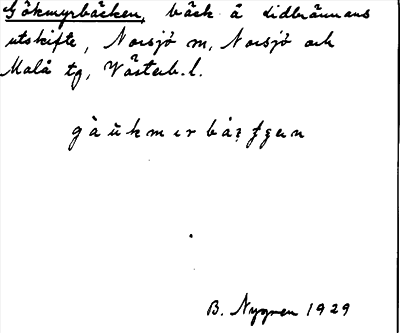 Gökmyrbäcken, bäck å Lidbrännans
utskifte, Norsjö sn, Norsjö och
Malå tg, Västerb. l.
B. Nygren 1929